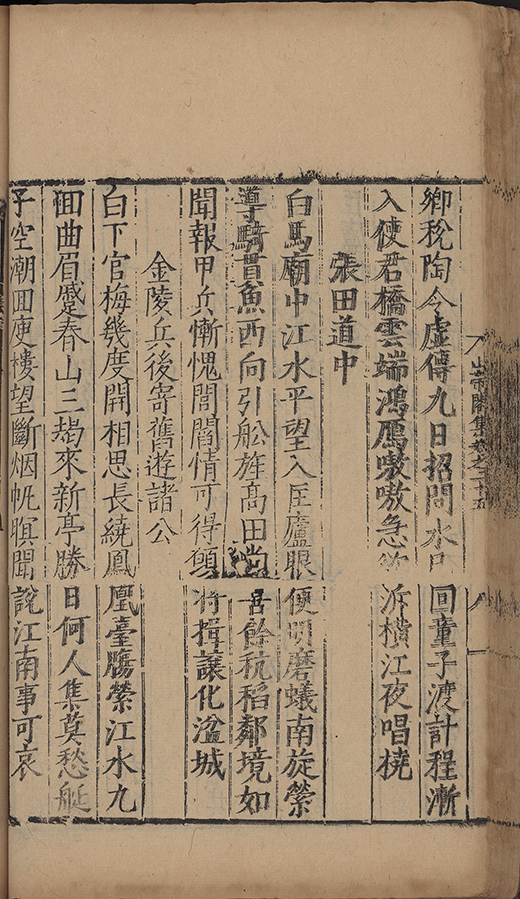 山帶閣集卷之二十五 八
稅陶令虛傳九日招問水回童子渡計程漸
入使君橋雲端鴻鴈嗷嗷急欲泝橫江夜唱橈
張田道中
白馬廟中江水平望入匡廬眼便明磨蟻南旋縈
導騎貫魚西向引舩旌高田尚喜餘秔稻鄰境如
聞報甲兵慚愧閭閻情可得願將揖讓化湓城
金陵兵後寄舊遊諸公
白下官梅幾度開相思長繞鳳凰臺膓縈江水九
囬曲眉蹙春山三朅來新亭勝日何人集莫愁艇
子空潮囬庾樓望斷烟帆暝聞說江南事可哀